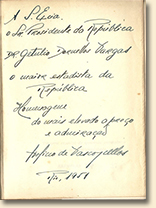 A S. Exia.
o Sr. Presidente da República
Dr. Getulio Dornelles Vargas
o maior estadista da
República
Homenagem
do mais elevado apreço
e admiração
de Vasconcellos
1951